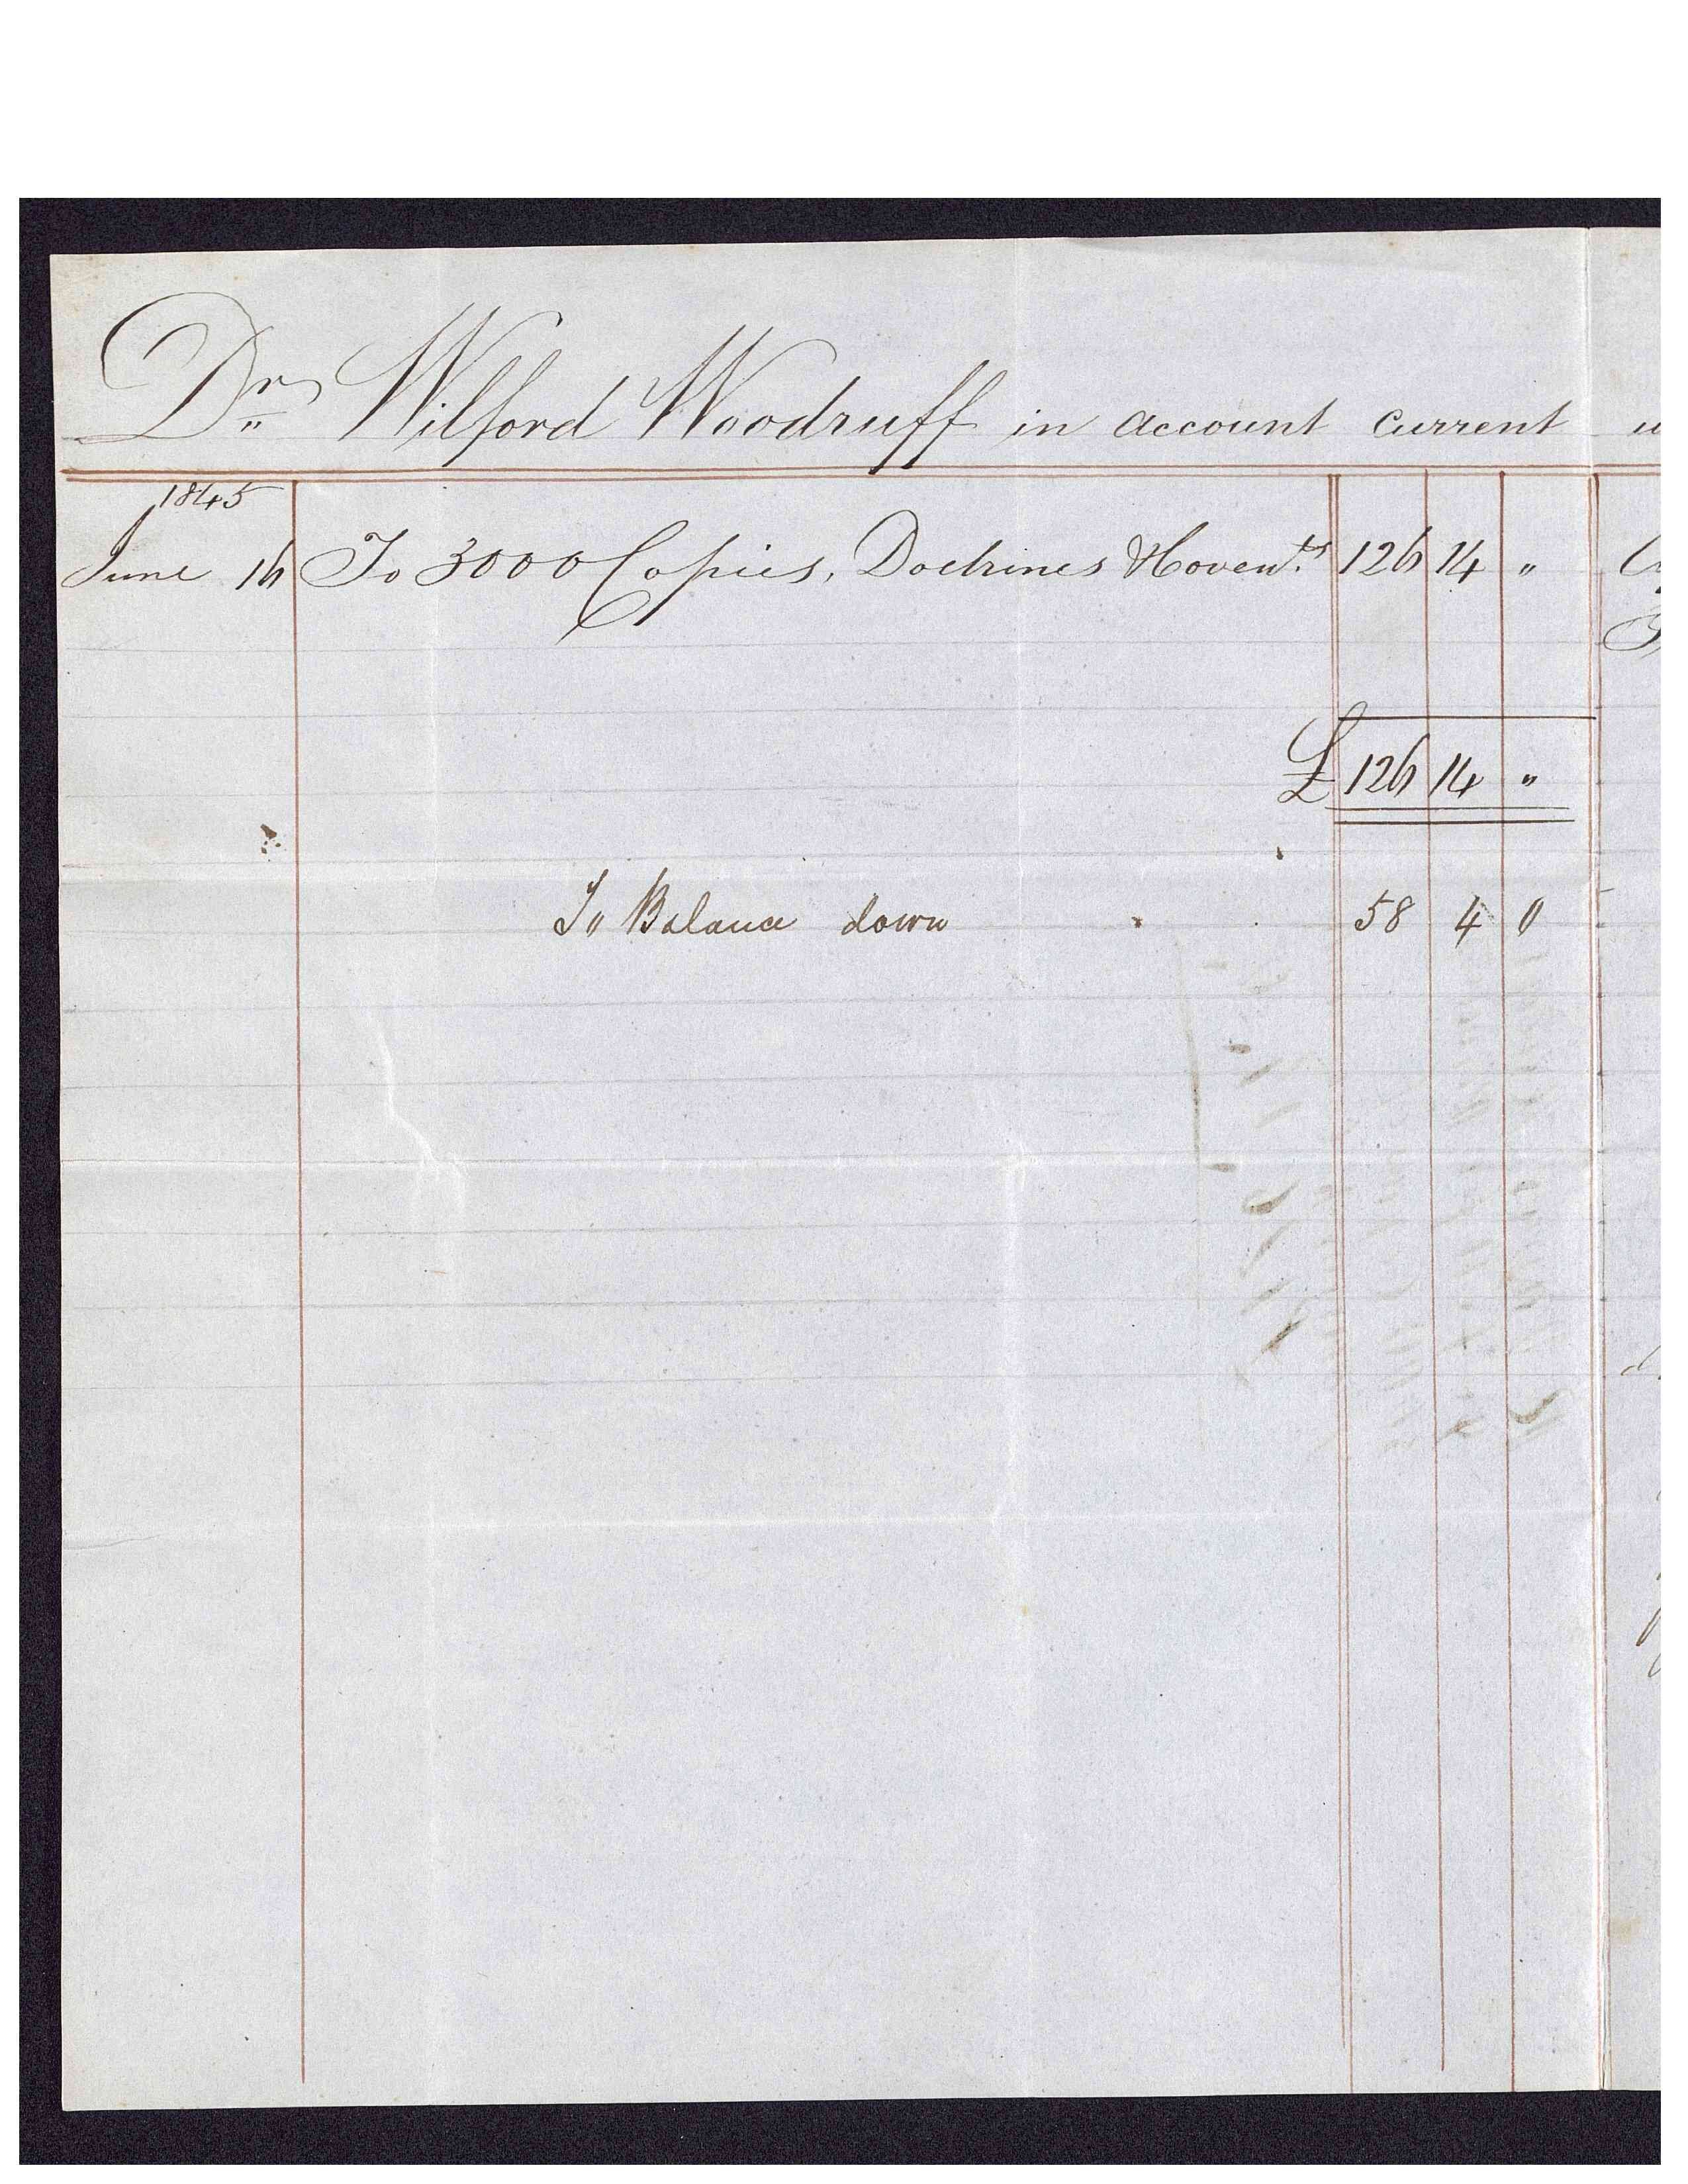 Dr Wilford Woodruff in account current
1845
June 16 To 3000 Copies, Doctrines & Coven.ts 126 14 "
£ 126 14 "
To Balance down 58 4 0